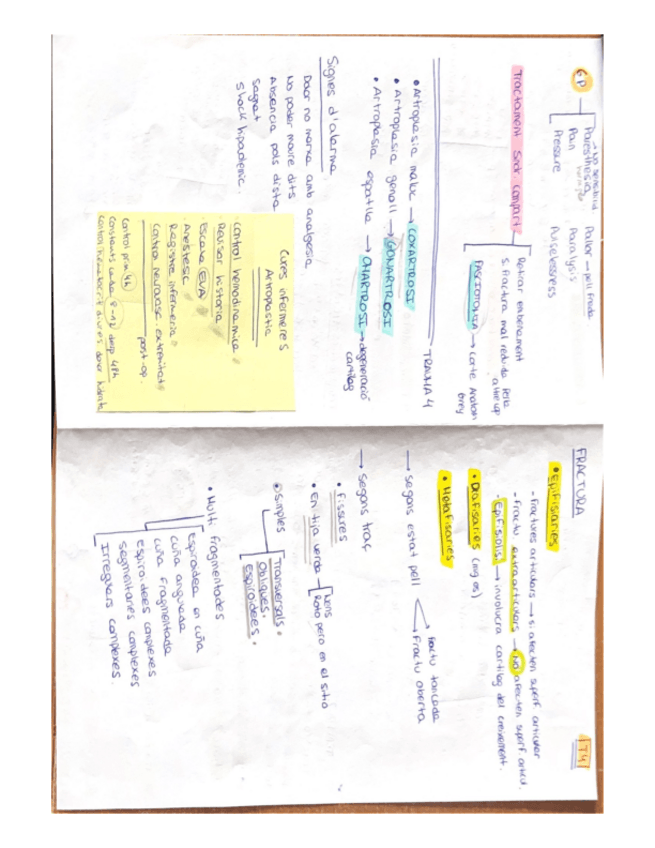 6P
Paresthesia → No sensibilitat
Pain
Pressure
Pallor → pell freda
Paralysis
Pulselessness
Tractament Sndr. Compart
Retirar embenament
Si fractura mal reduida
FASCIOTOMIA → corte Anatom
TRAUMA 4
• Artroplasia maluc → COXARTROSI
• Artroplasia genoll → GONARTROSI
• Artroplasia espatlla → OMARTROSI → degeneració
cartílag
Signes d'alarma
Dolor no marxa amb analgesia
No poder moure dits
Absencia pols distal
Sagnat
Shock hipovolemic.
Cures infermeres
Artroplastia
Control hemodinamica
· Revisar historia
· Escala EVA
· Anestesic
Registre infermeria
Control neurovasc. extremitats
post-op.
Control prim 4h
Constants cada 8-12 desp 48h
FRACTURA
T4
• Epifisiaries
- fractures articulars → si afecten superf. articular
- fractu extraarticulars → No afecten superf. articul.
- epifisiolisi → involucra cartílag del creixement.
• Diafisaries
• Metafisaries
→ segons estat pell
fractu tancada
Fractu oberta
→ segons traç
• Fissures
• En tija verda
Nens
Roto pero en el sitio
Simples
Transversals
Obliques
Espiroidees
• Multi fragmentades
Espiroidea en cuña
cuña angulada
cuña fragmentada
espiroidees complexes
segmentaries complexes
Irregulars complexes.